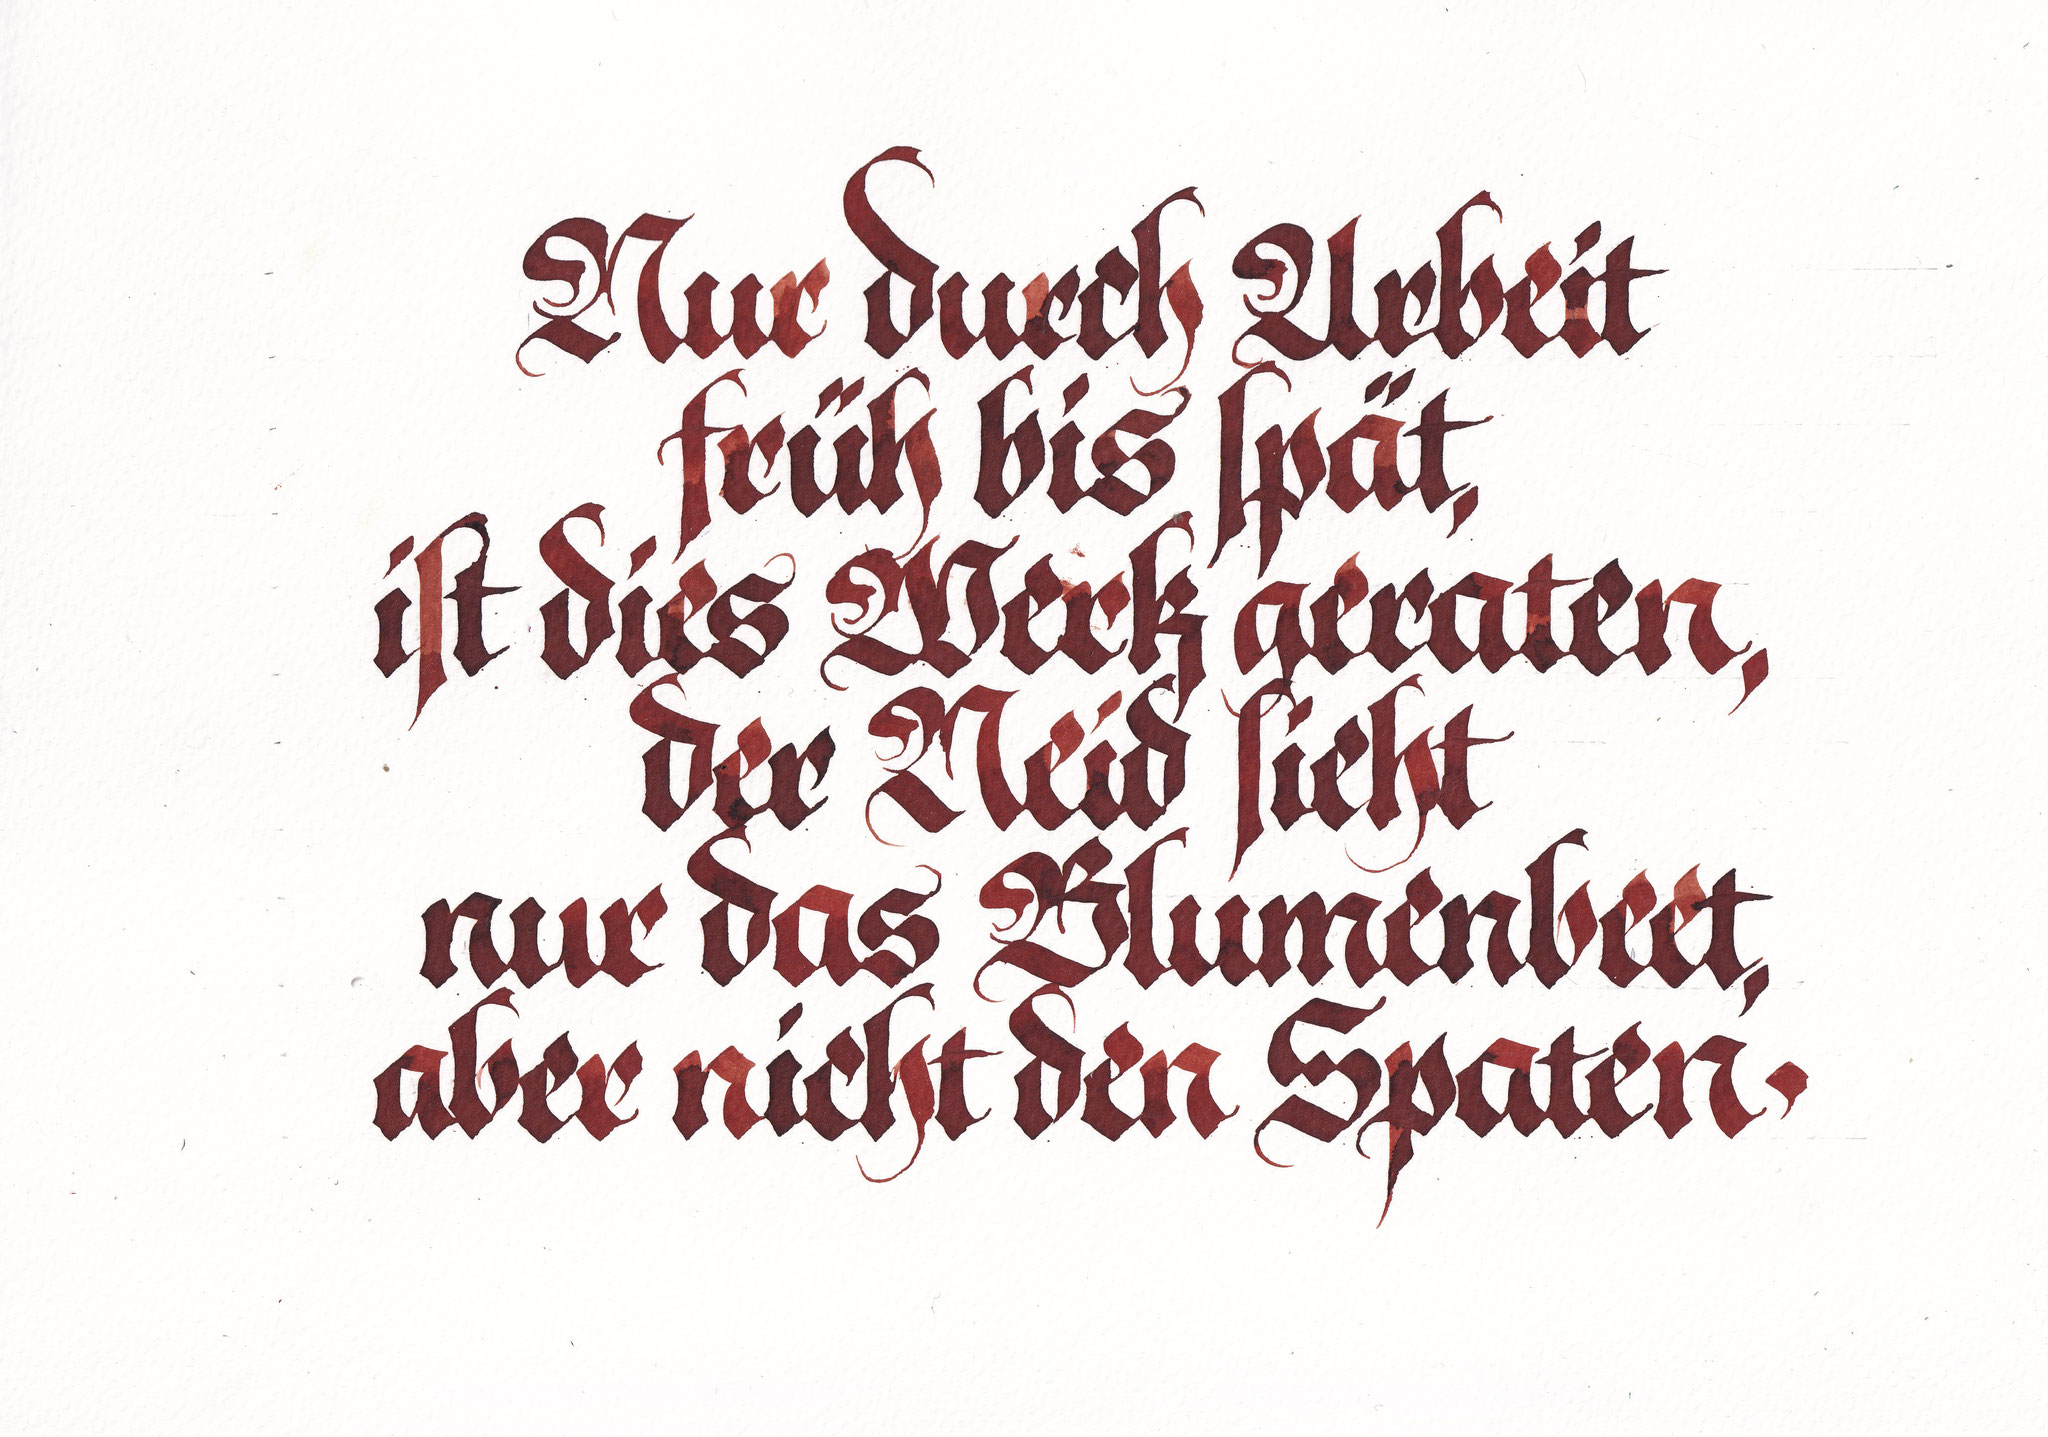 Nur durch Arbeit
früh bis ſpät,
iſt dies Werk geraten,
der Neid ſieht
nur das Blumenbeet,
aber nicht den Spaten.